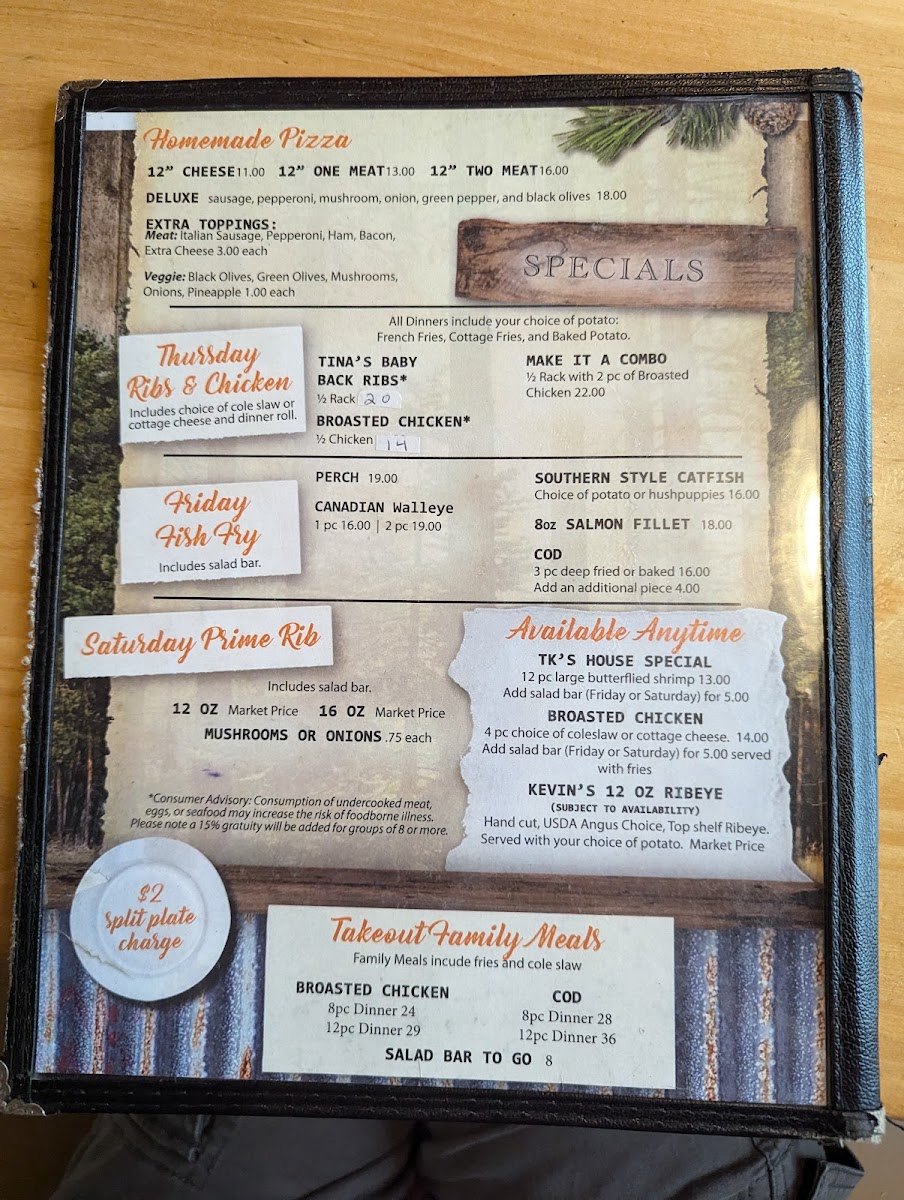 Homemade Pizza
12” CHEESE11.00 12” ONE MEAT13.00 12” TWO MEAT16.00
DELUXE sausage, pepperoni, mushroom, onion, green pepper, and black olives 18.00
EXTRA TOPPINGS:
Meat: Italian Sausage, Pepperoni, Ham, Bacon,
Extra Cheese 3.00 each
Veggie: Black Olives, Green Olives, Mushrooms,
Onions, Pineapple 1.00 each
SPECIALS
All Dinners include your choice of potato:
French Fries, Cottage Fries, and Baked Potato.
Thursday
Ribs & Chicken
Includes choice of cole slaw or
cottage cheese and dinner roll.
TINA’S BABY
BACK RIBS*
½ Rack 20
BROASTED CHICKEN*
½ Chicken 14
MAKE IT A COMBO
½ Rack with 2 pc of Broasted
Chicken 22.00
Friday
Fish Fry
Includes salad bar.
PERCH 19.00
CANADIAN Walleye
1 pc 16.00 | 2 pc 19.00
SOUTHERN STYLE CATFISH
Choice of potato or hushpuppies 16.00
8oz SALMON FILLET 18.00
COD
3 pc deep fried or baked 16.00
Add an additional piece 4.00
Saturday Prime Rib
Includes salad bar.
12 OZ Market Price 16 OZ Market Price
MUSHROOMS OR ONIONS .75 each
*Consumer Advisory: Consumption of undercooked meat,
eggs, or seafood may increase the risk of foodborne illness.
Please note a 15% gratuity will be added for groups of 8 or more.
Available Anytime
TK’S HOUSE SPECIAL
12 pc large butterflied shrimp 13.00
Add salad bar (Friday or Saturday) for 5.00
BROASTED CHICKEN
4 pc choice of coleslaw or cottage cheese. 14.00
Add salad bar (Friday or Saturday) for 5.00 served
with fries
KEVIN’S 12 OZ RIBEYE
(SUBJECT TO AVAILABILITY)
Hand cut, USDA Angus Choice, Top shelf Ribeye.
Served with your choice of potato. Market Price
$2
split plate
charge
Takeout Family Meals
Family Meals incude fries and cole slaw
BROASTED CHICKEN
8pc Dinner 24
12pc Dinner 29
COD
8pc Dinner 28
12pc Dinner 36
SALAD BAR TO GO 8